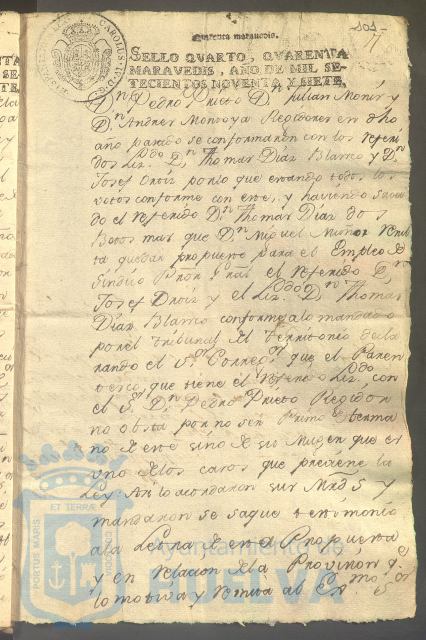 Quarenta marauedis.
SELLO QVARTO, QVARENTA
MARAVEDIS, AÑO DE MIL SE-
TECIENTOS NOVENTA, Y SIETE.
CAROLUS IV
Dn. Pedro Prieto Dn. Julian Monis y
Dn. Andres Montoya Regidores en dho
año pasado se conformaron con los referi
dos Lizdo. Dn. Thomas Diaz Blanco y Dn.
Josef por lo que estando todos los
votos conforme con este, y haviendo saca
do el referido Dn. Thomas Diaz dos
Botos mas que Dn. Miguel Muñoz resul
ta quedar propuesto para el Empleo de
Sindico el referido Dn.
Josef y el Lizdo. Dn. Thomas
Diaz Blanco conforme a lo mandado
por el tribunal del territorio decla
rando el Sor. Corregor. que el Paren
tesco, que tiene el referido Lizdo. con
el Sor. Dn. Pedro Prieto Regidor
no obsta por no ser Primo Herma
no de este sino de su Muger que es
uno de los casos que previene la
Ley: Asi lo acordaron sus Mrds. y
mandaron se saque testimonio
a la Letra de en el Propuesta
y en relacion de la Provision qe.
lo motiva y remita al Exmo. Sor
PORTUS MARIS ET TERRAE CUSTODIA
Ayuntamiento de
HUELVA